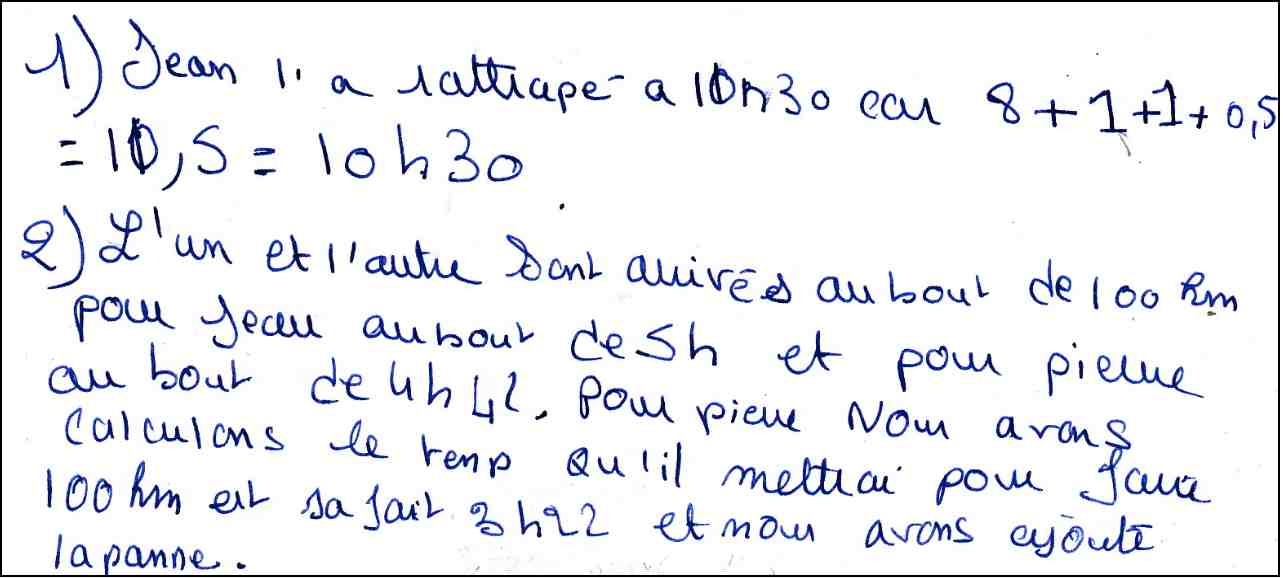 1) Jean l'a rattrapé a 10h30 car 8+1+1+0,5
= 10,5 = 10h30
2) L'un et l'autre sont arrivés au bout de 100 km
pour Jean au bout de 5h et pour pierre
au bout de 4h42. Pour pierre Nous avons
calculons le temp qu'il mettrai pour faire
100 km est sa fait 3h22 et nous avons ajouté
la panne.